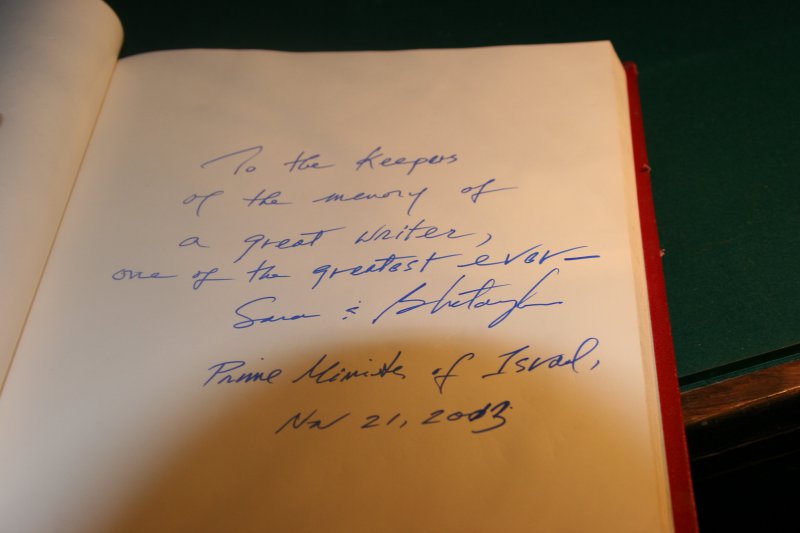 To the Keepers
of the memory of
a great writer,
one of the greatest ever—
Sara & B. Netanyahu
Prime Minister of Israel,
Nov 21, 2013